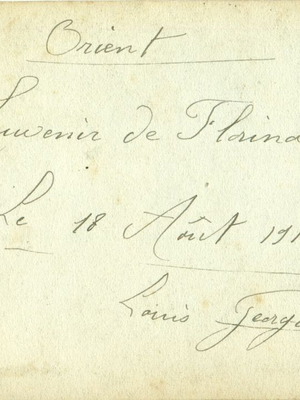 Orient
Souvenir de Florina
Le 18 Août 191
Louis George